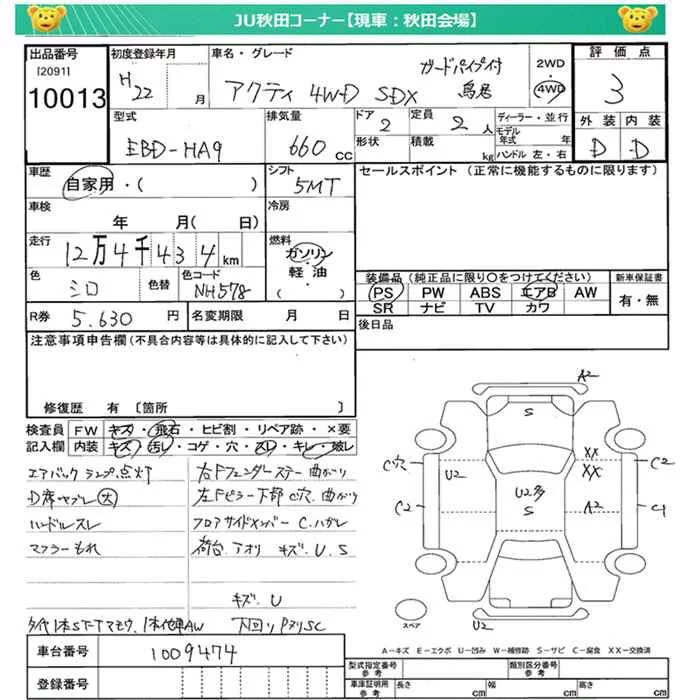 JU秋田コーナー【現車：秋田会場】
出品番号
[2091]
10013
初度登録年月
H22 月
車名・グレード
アクティ 4WD SDX
ガードパイプ付
2WD
4WD
評価点
3
外装 内装
D D
型式
EBD-HA9
排気量
660 CC
ドア
2
形状
定員
2 人
積載
kg
ディーラー・並行
モデル年式 年
ハンドル 左・右
車歴
自家用・( )
シフト
5MT
セールスポイント（正常に機能するものに限ります）
車検
年 月( 日)
冷房
走行
12万4千434km
燃料
ガソリン
軽油
( )
色
シロ
色替
色コード
NH578
装備品（純正品に限り○をつけてください）
PS PW ABS エアB AW
SR ナビ TV カワ
新車保証書
有・無
R券 5.630 円
名変期限 月 日
後日品
注意事項申告欄（不具合内容等は具体的に記入して下さい）
修復歴 有 〔箇所 〕
検査員記入欄
FW キズ・飛石・ヒビ割・リペア跡・×要
内装 キズ・汚レ・コゲ・穴・スレ・キレ・破レ
エアバックランプ点灯
D席ヤブレ大
ハンドルスレ
マフラーもれ
右Fフェンダーステー曲がり
左Fピラー下部C穴.曲がり
フロアサイドメンバーC.ハガレ
荷台.アオリ キズ.U.S
キズ.U
下回り
A2
S
C穴
U2
XX
XX
C2
C2
U2多
S
A2
C1
スペア
U2
A－キズ E－エクボ U－凹み W－補修跡 S－サビ C－腐食 XX－交換済
車台番号
1009474
登録番号
型式指定番号
参考
類別区分番号
参考
車庫証明用
参考
長さ cm
幅 cm
高さ cm